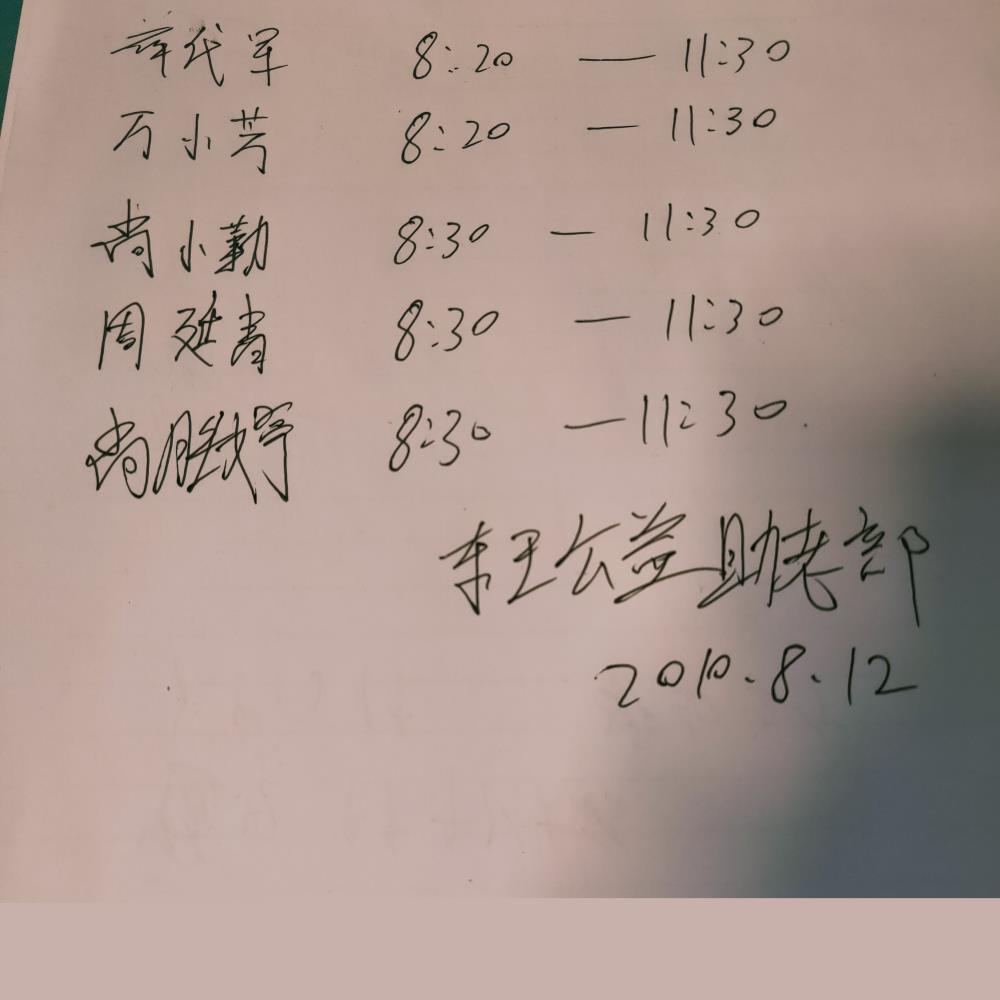 薛代军 8:20 — 11:30
万小芳 8:20 — 11:30
尚小勤 8:30 — 11:30
周延青 8:30 — 11:30
尚胜 8:30 — 11:30
王公益助老部
2010.8.12